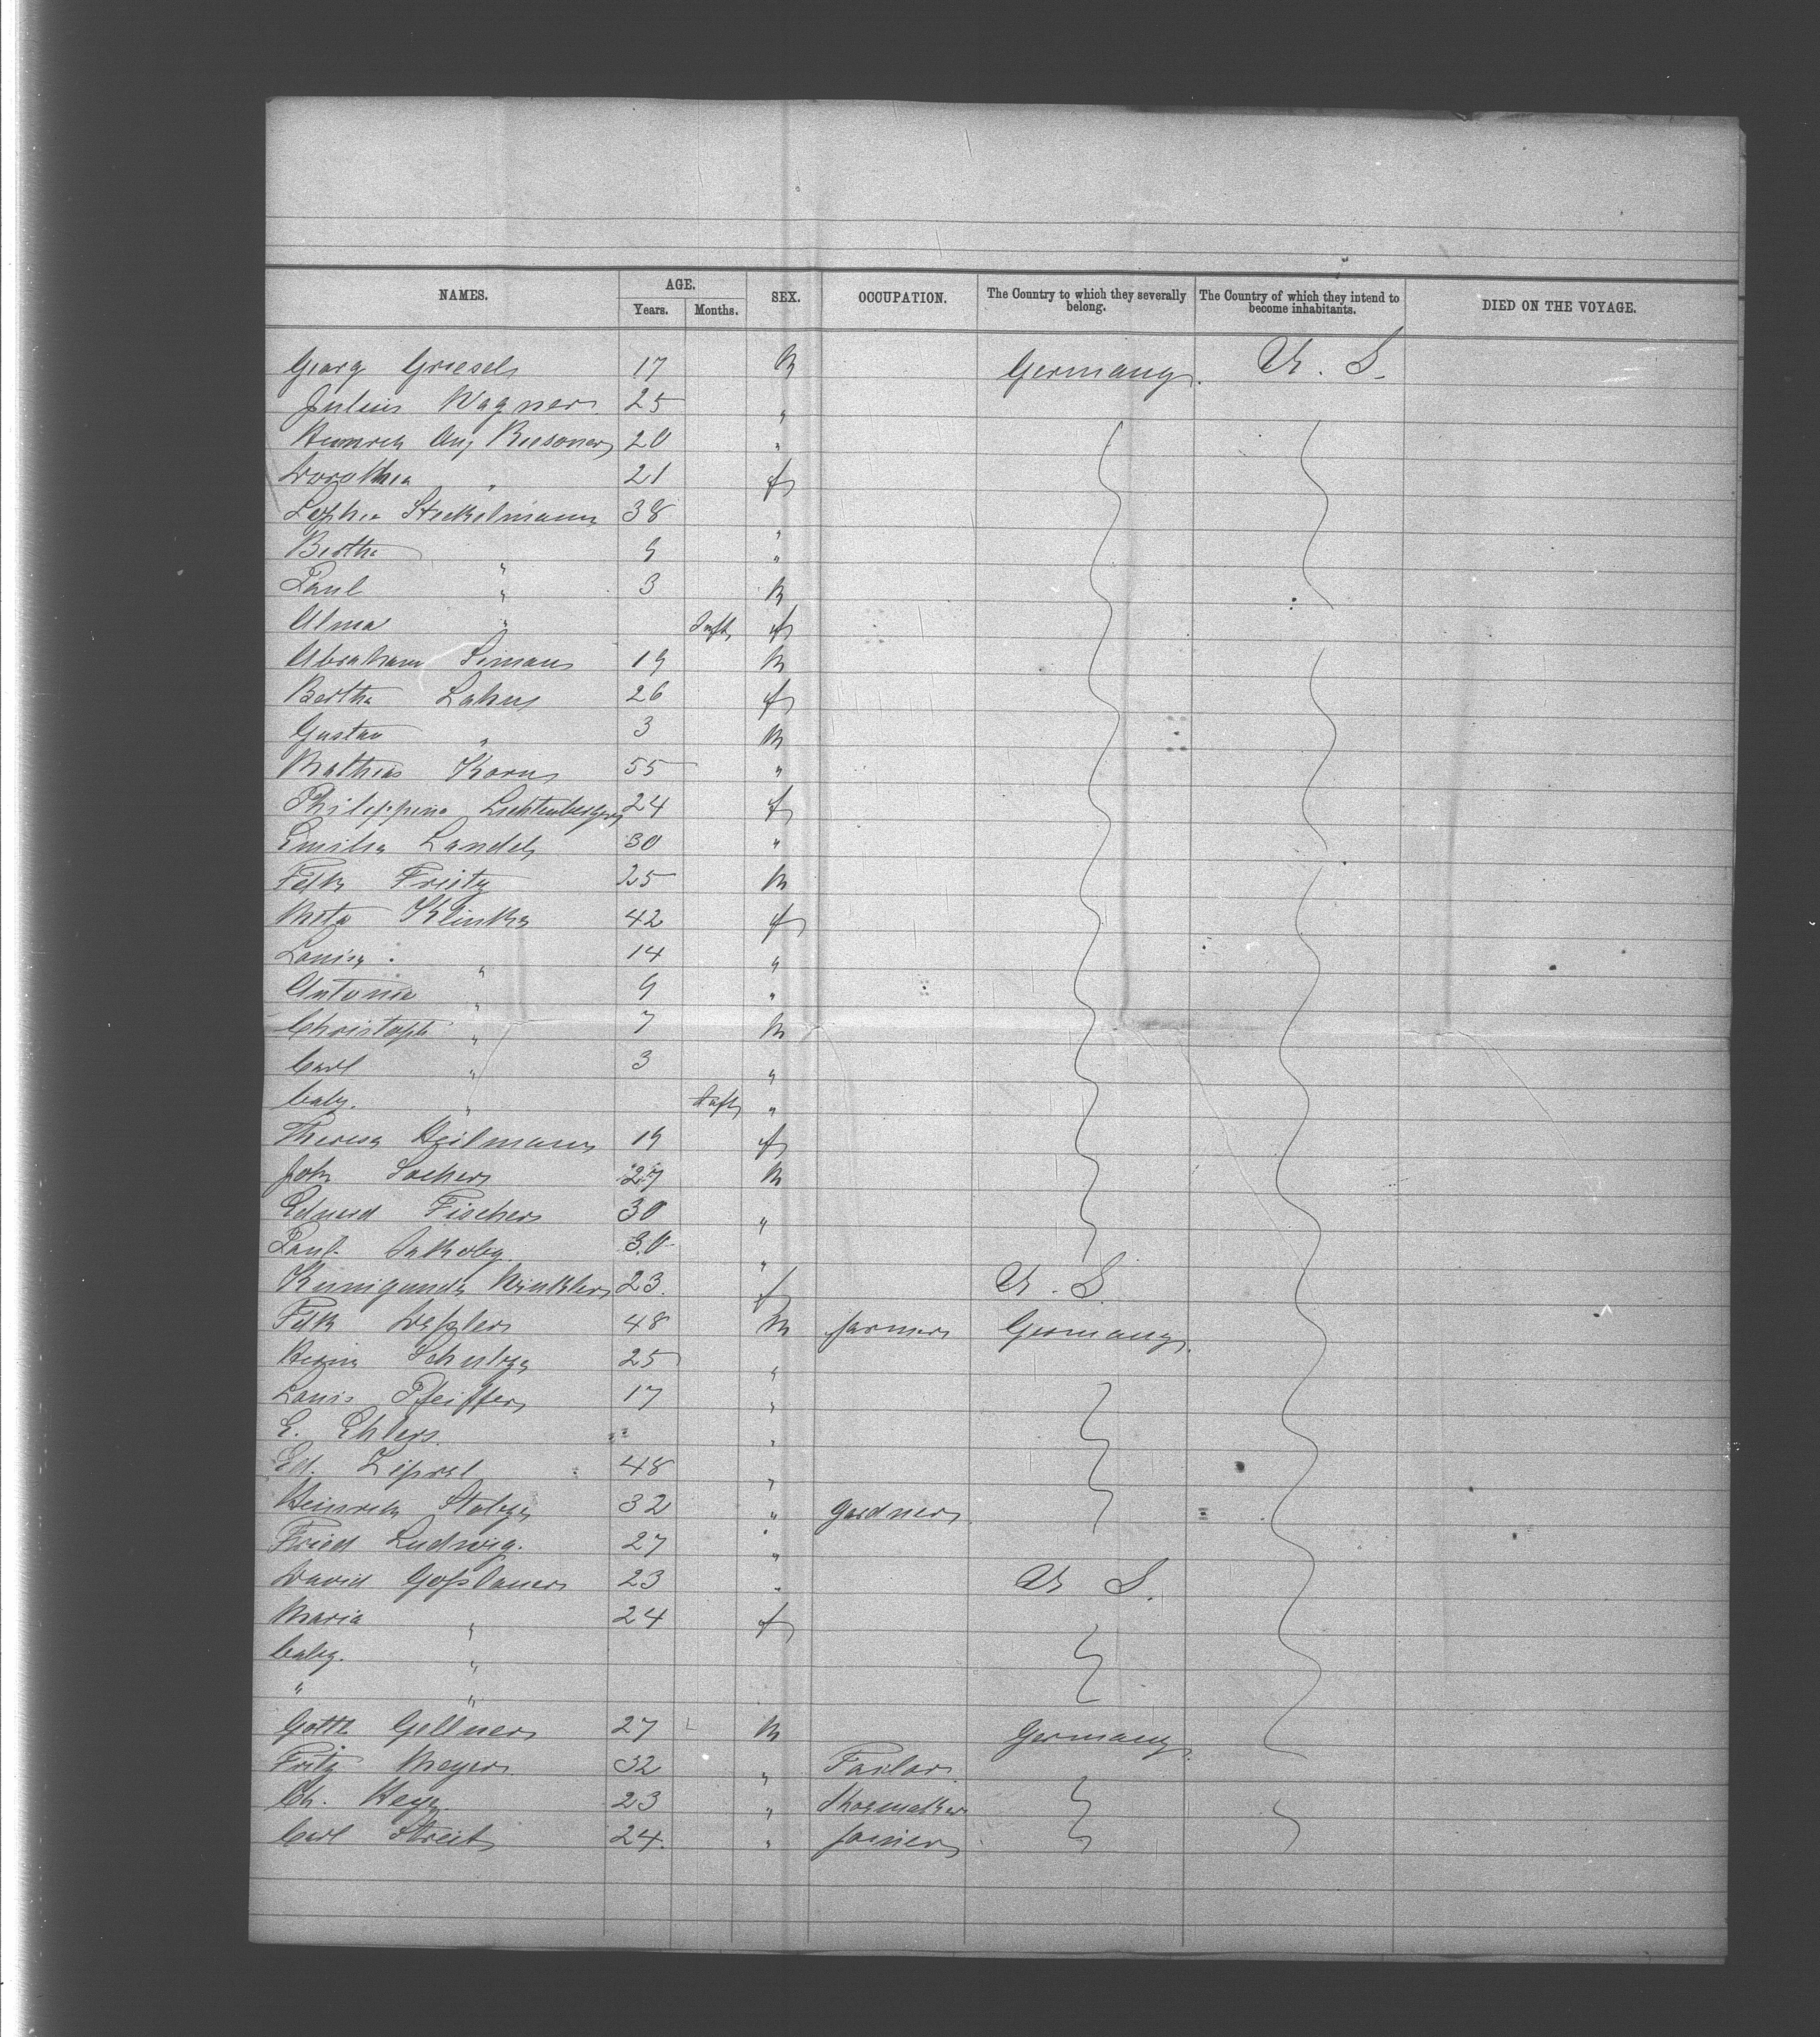 NAMES. AGE. SEX. OCCUPATION. The Country to which they severally belong. The Country of which they intend to become inhabitants. DIED ON THE VOYAGE.
Years. Months.
Georg Griesel 17 M Germany. U. S.
Julius Wagner 25 "
Heinrich Aug 20 "
Dorothea " 21 f
Sophie Steckelmann 38 "
Bertha " 9 "
Paul " 3 M
Alma " Inft f
Abraham Simon 19 M
Bertha 26 f
Gustav " 3 M
Mathias Korn 55 "
Philippine Lichtenberger 24 f
Emilie Landel 30 "
25 M
Meta Klinke 42 f
Louise " 14 "
Antonie " 9 "
Christoph " 7 M
Carl " 3 "
baby. " Inft "
Theresa Heilmann 19 f
John 27 M
Eduard Fischer 30 "
Paul Jakoby 30 "
Kunigunde Winkler 23. f U. S.
48 M farmer Germany.
Schulze 25 "
Louis Pfeiffer 17 "
E. Ehlers. "
Ed. 48 "
Heinrich 32 " gardner.
Fried Ludwig. 27 "
David Goßlauer 23 " U S.
Maria " 24 f
baby. "
" "
Gottl Gellner 27 M Germany.
Fritz Meyer. 32 " Tailor.
Ch. 23 " Shoemaker
Carl Streit 24. " joiner